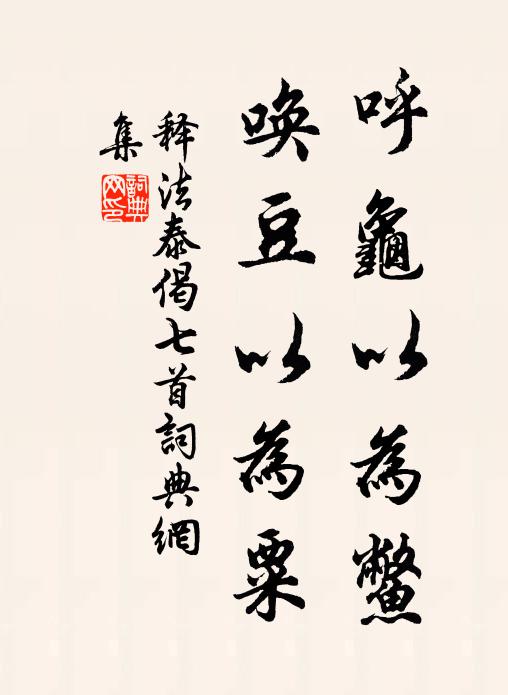 呼龜以為鱉
喚豆以為粟
释法泰偈七首詞典網
集
詞典網印